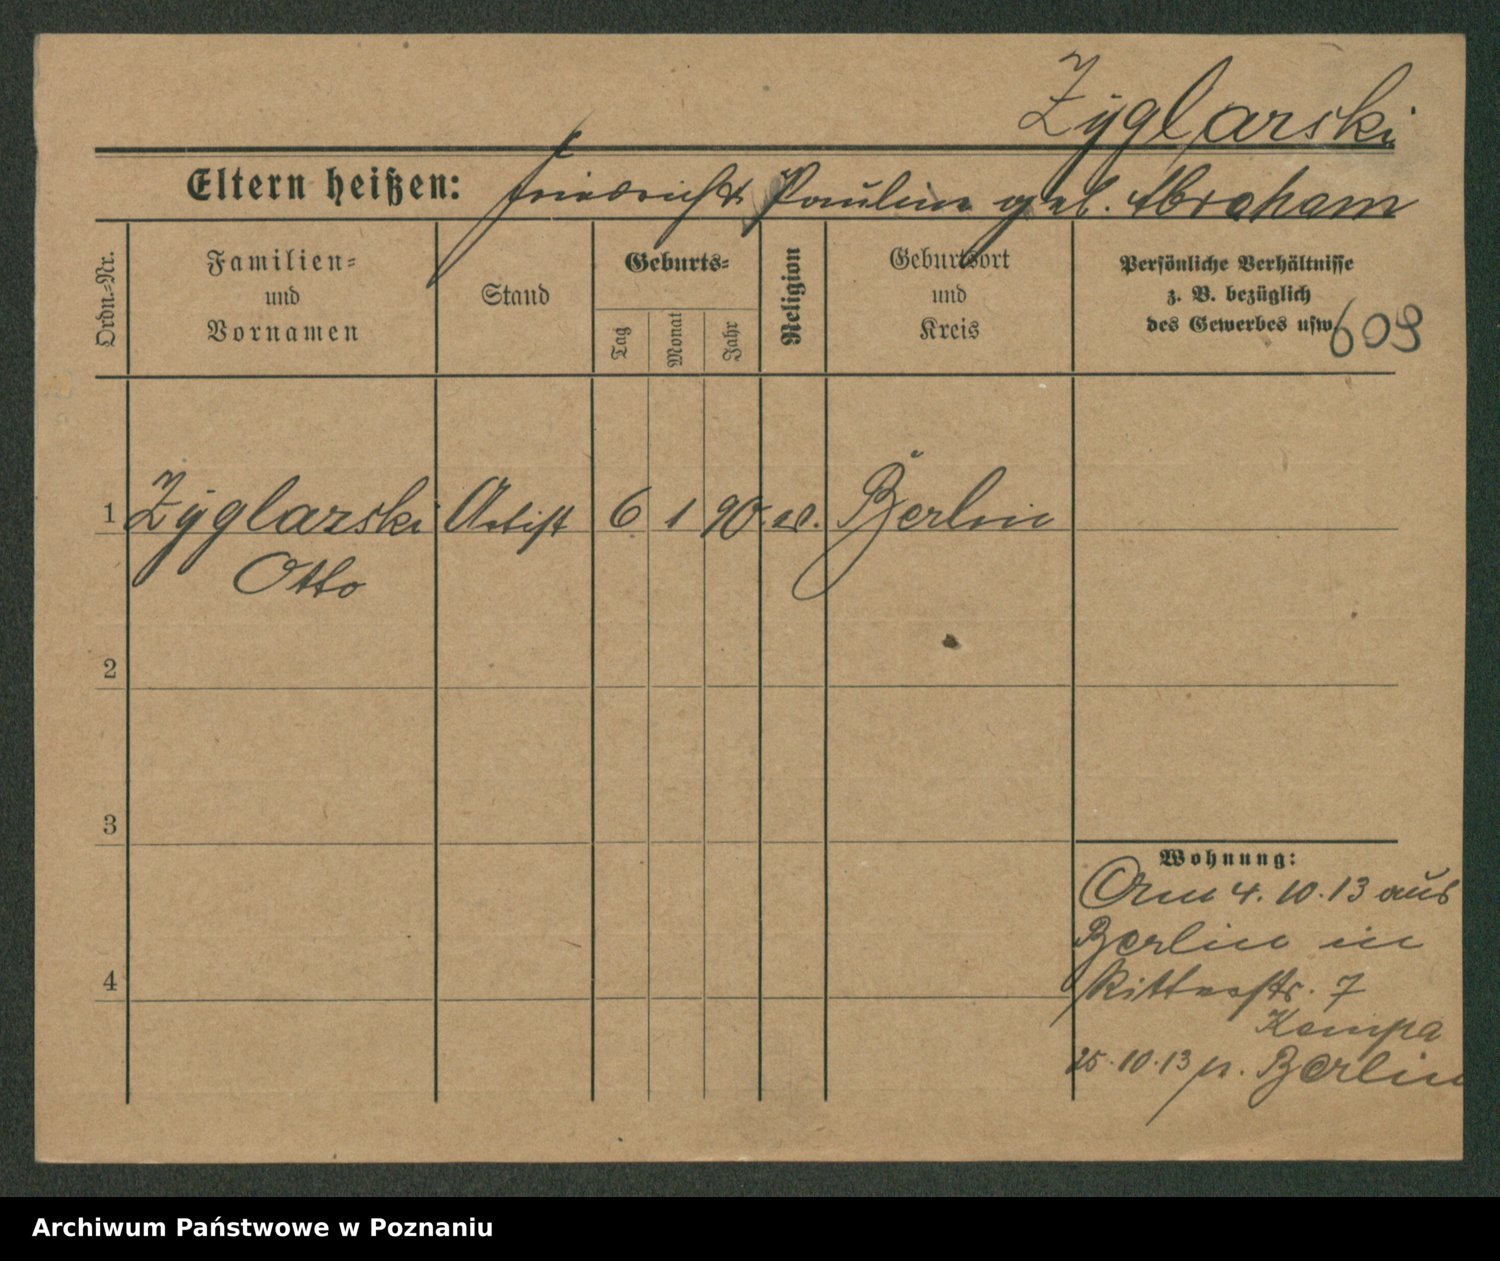 Zyglarski
Eltern heißen: Friedrich & Pauline geb. Abraham
Ordn.=Nr.
Familien=
und
Vornamen
Stand
Geburts=
Tag
Monat
Jahr
Religion
Geburtsort
und
Kreis
Persönliche Verhältnisse
z. B. bezüglich
des Gewerbes usw.
609
1 Zyglarski Artist 6 1 90 ev. Berlin
Otto
2
3
4
Wohnung:
4. 10. 13 aus
Berlin in
Ritterstr. 7
Kempa
25. 10. 13 n. Berlin
Archiwum Państwowe w Poznaniu